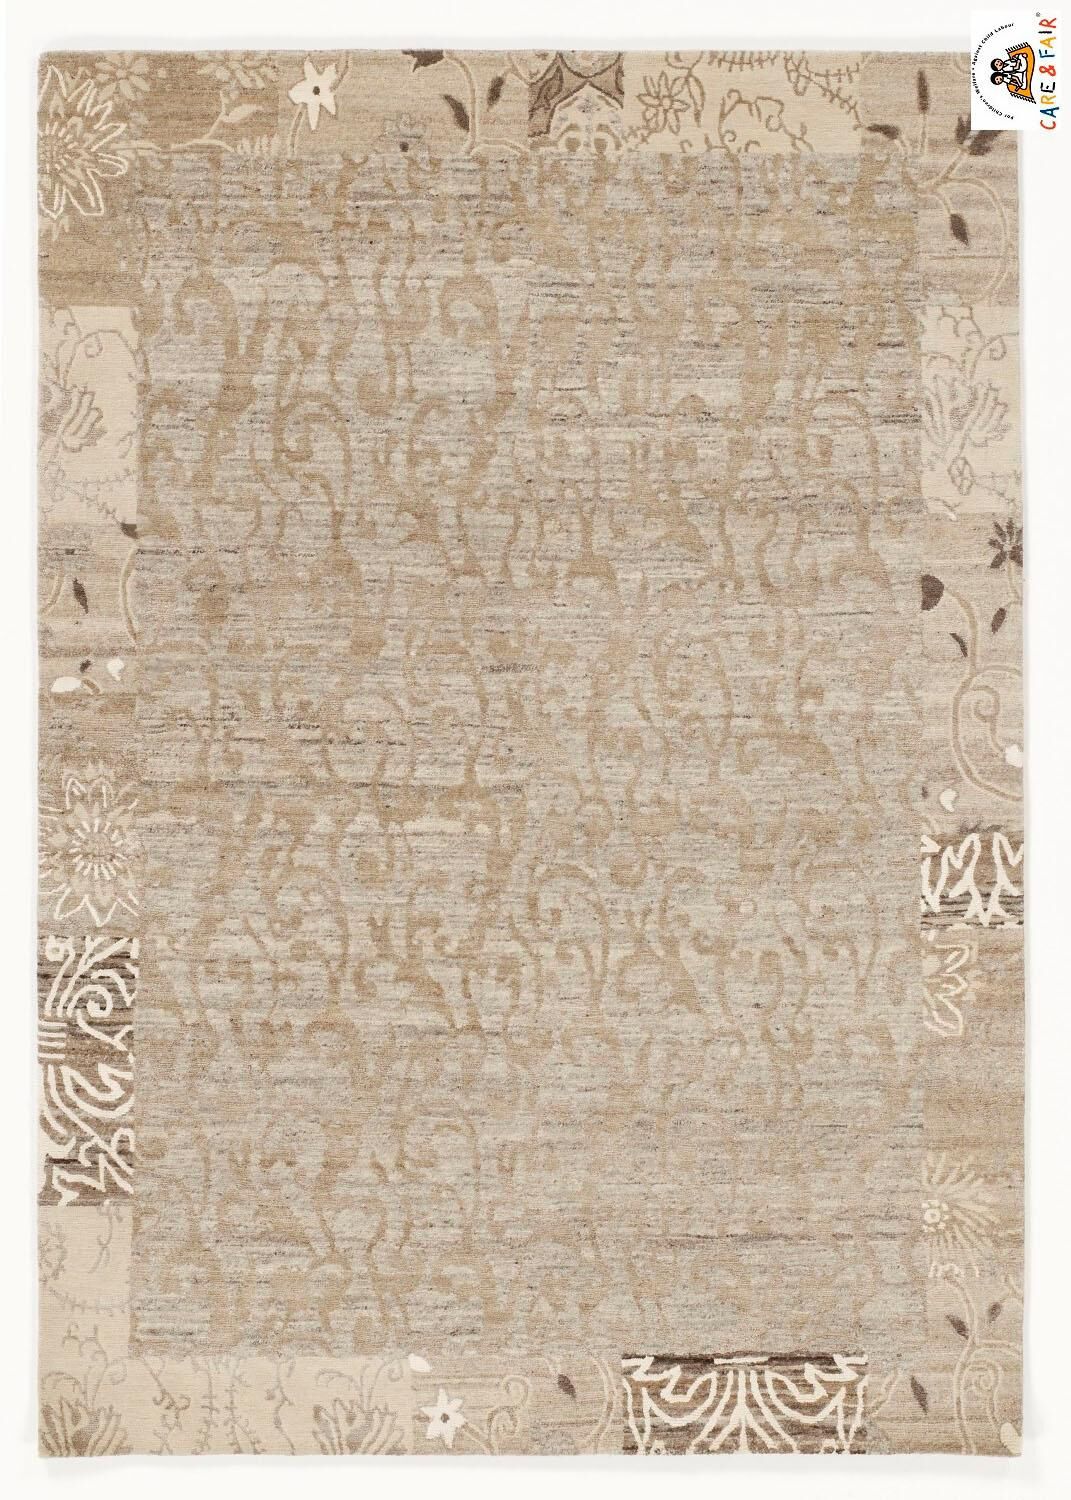 For Children's Welfare • Against Child Labour
CARE & FAIR®